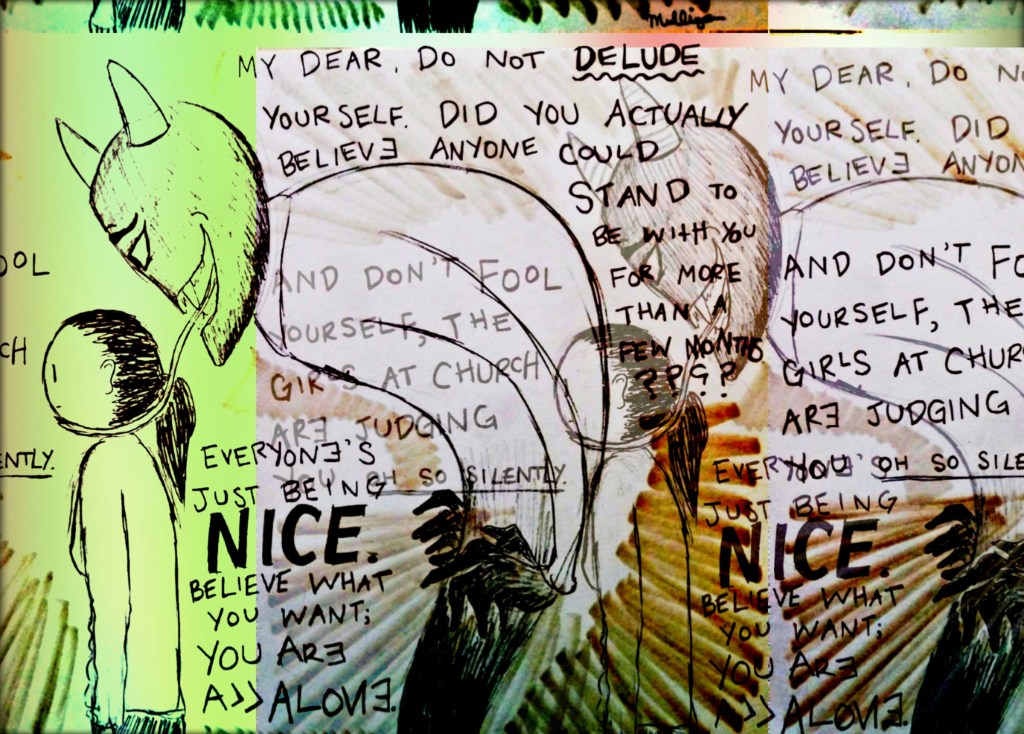 Milligan
MY DEAR, DO NOT DELUDE
YOURSELF. DID YOU ACTUALLY
BELIEVE ANYONE COULD
STAND TO
BE WITH YOU
FOR MORE
THAN A
FEW MONTHS
????
AND DON'T FOOL
YOURSELF, THE
GIRLS AT CHURCH
ARE JUDGING
YOU OH SO SILENTLY.
EVERYONE'S
JUST BEING
NICE.
BELIEVE WHAT
YOU WANT;
YOU ARE
ALL ALONE.
OOL
CH
ENTLY.
MY DEAR, DO NO
YOURSELF. DID
BELIEVE ANYON
AND DON'T FO
YOURSELF, THE
GIRLS AT CHUR
ARE JUDGING
YOU OH SO SILE
EVERYONE'S
JUST BEING
NICE.
BELIEVE WHAT
YOU WANT;
YOU ARE
ALL ALONE.